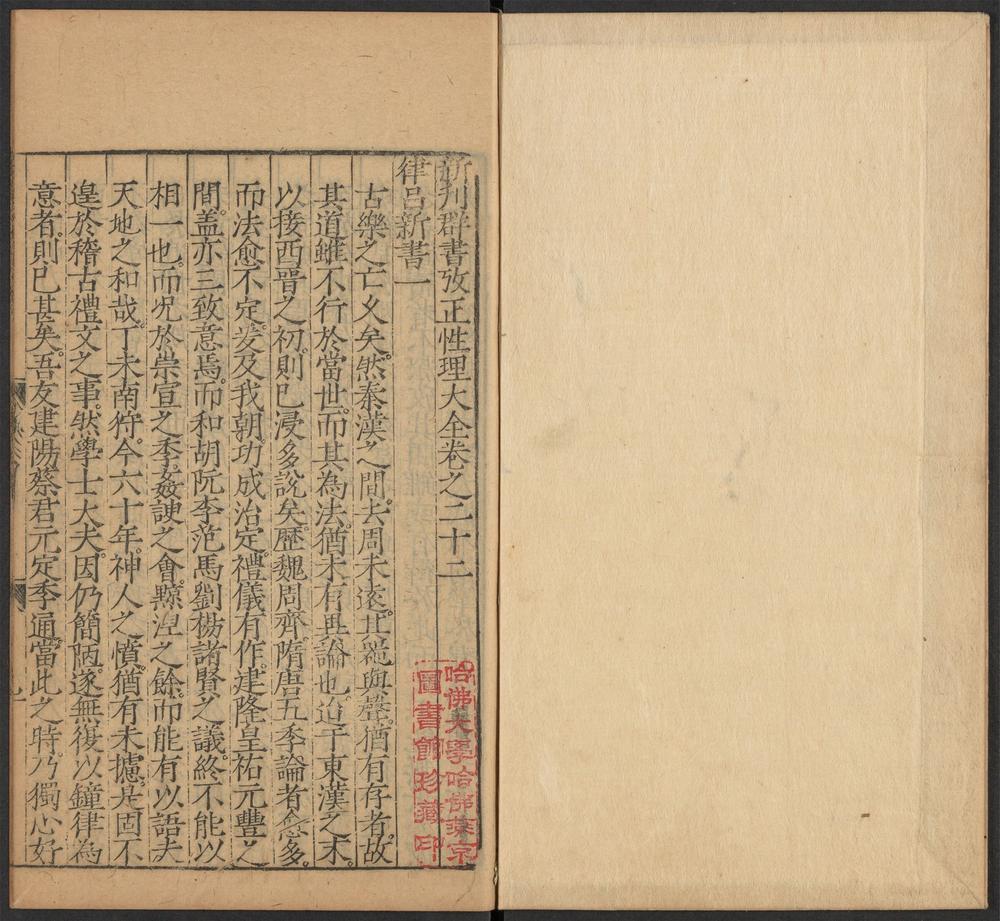 新刋群書攷正性理大全卷之二十二
律吕新書一
古樂之亡久矣。然秦漢之間。去周未遠。其器與聲。猶有存者。故
其道雖不行於當世。而其為法。猶未有異論也。迨于東漢之末。
以接西晉之初。則已浸多說矣。歷魏周齊隋唐五季。論者愈多。
而法愈不定。爰及我朝。功成治定。禮儀有作。建隆皇祐元豐之
間。盖亦三致意焉。而和胡阮李范馬劉楊諸賢之議。終不能以
相一也。而况於崇宣之季。姦諛之會。黥涅之餘。而能有以語夫
天地之和哉。丁未南狩。今六十年。神人之憤。猶有未攄。是固不
遑於稽古禮文之事。然學士大夫。因仍簡陋。遂無復以鐘律為
意者。則已甚矣。吾友建陽蔡君元定季通。當此之時。乃獨心好
哈佛大學哈佛燕京
圖書館珍藏印